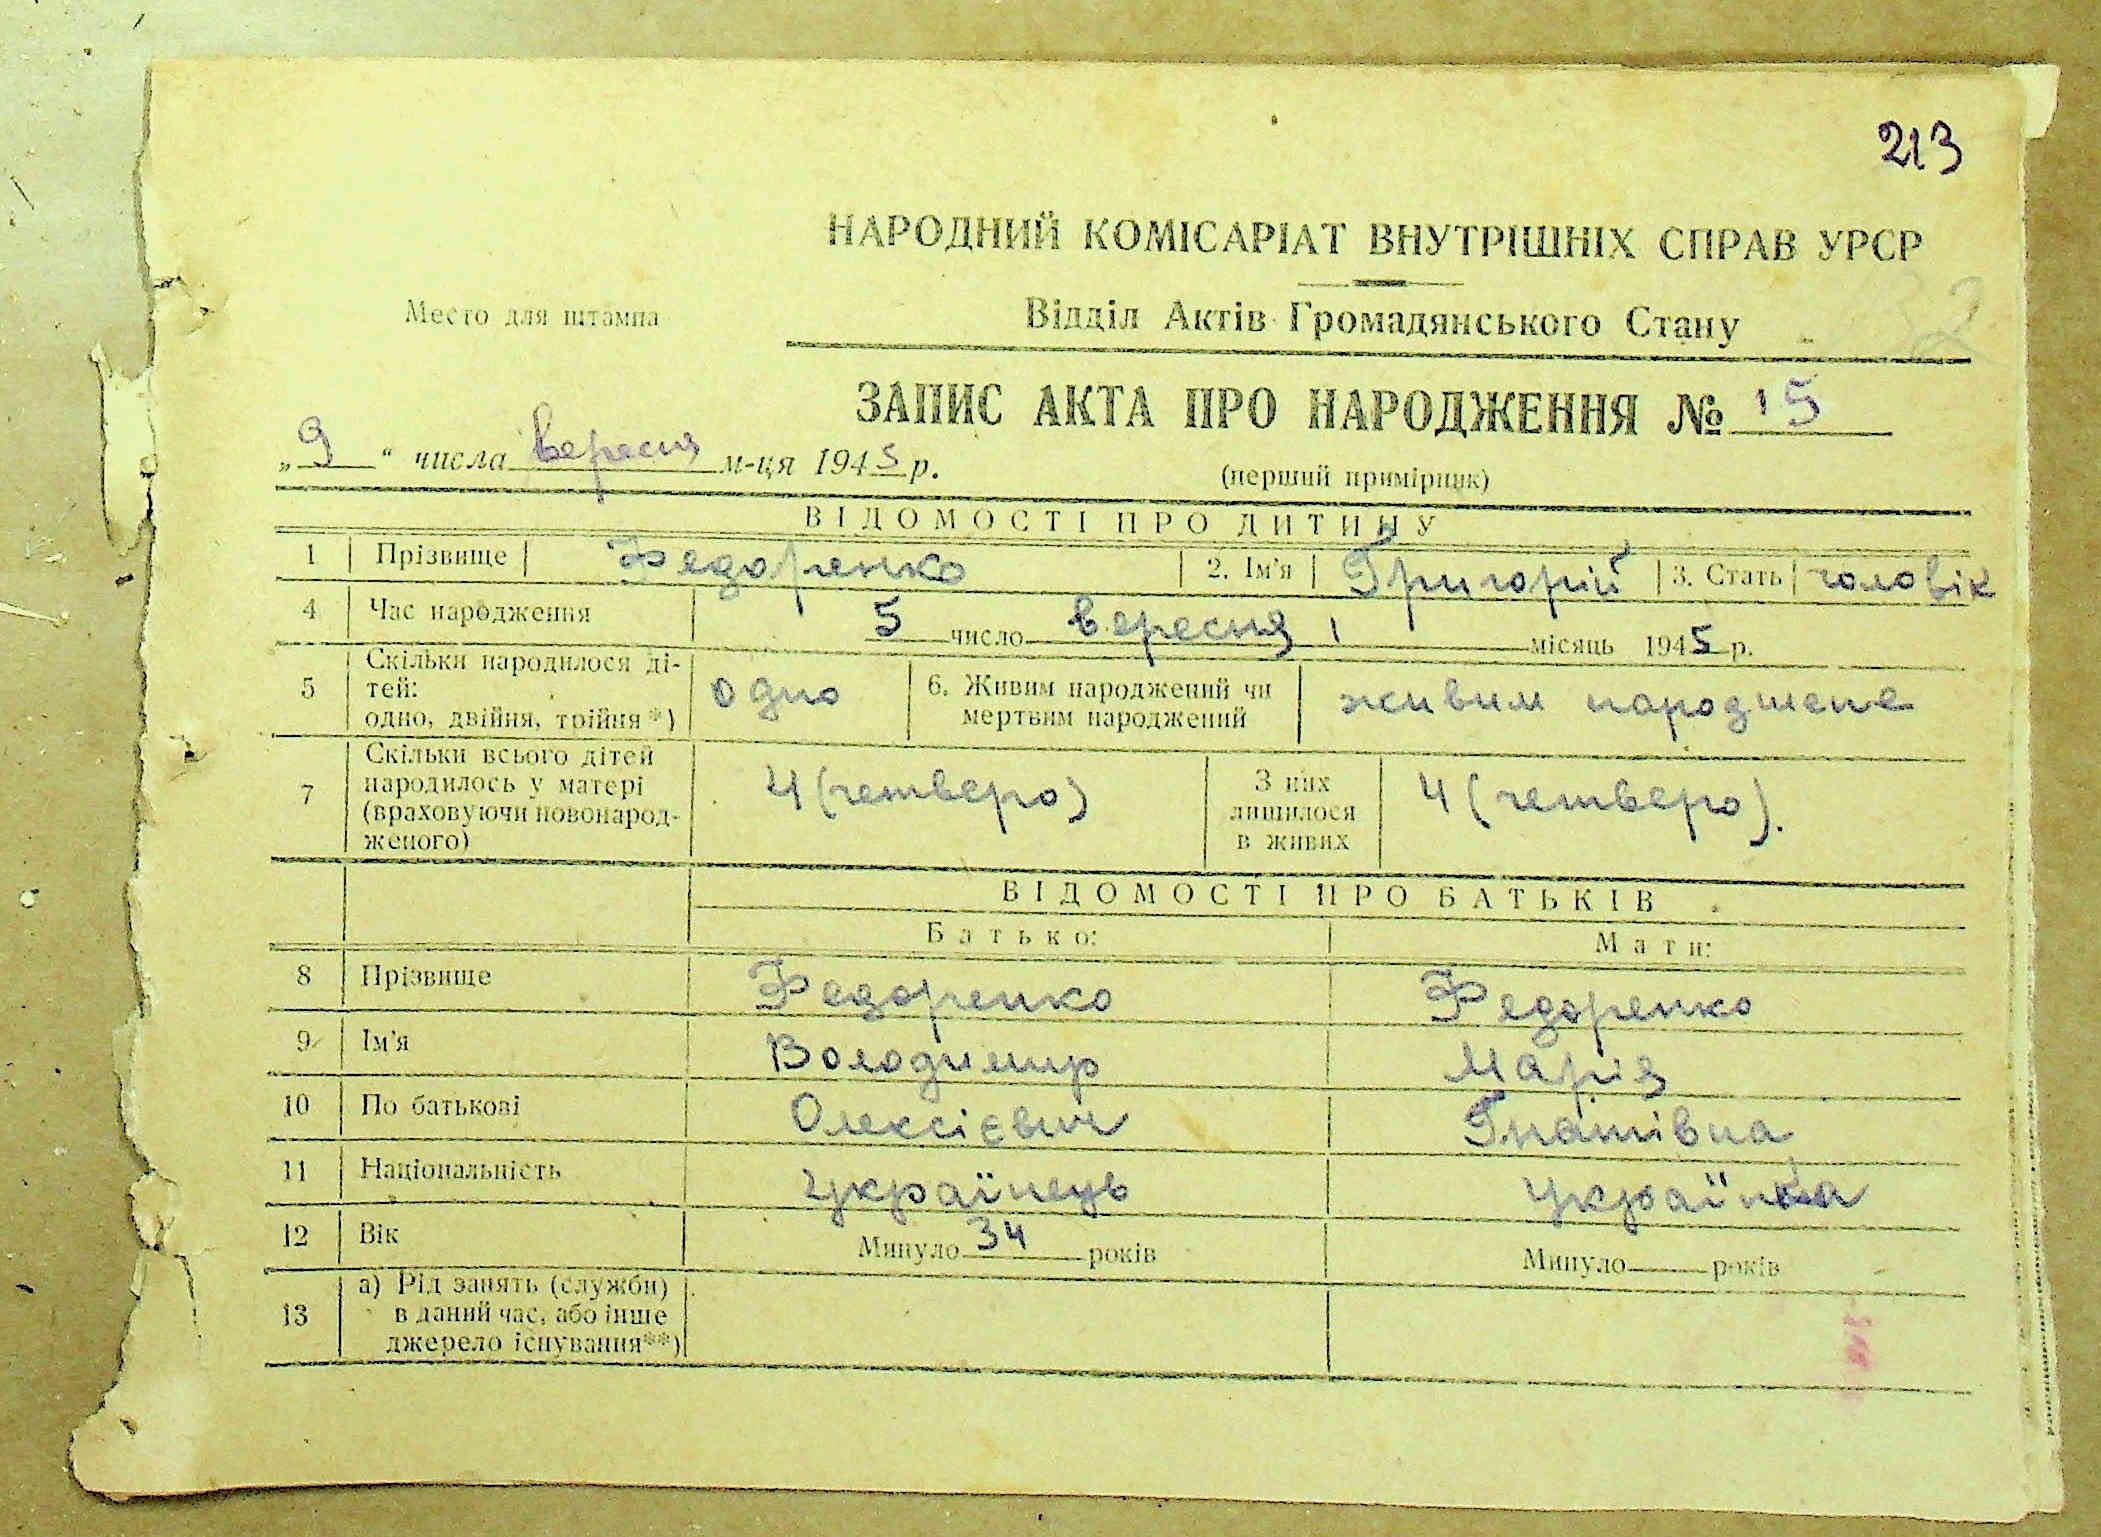 213
НАРОДНИЙ КОМІСАРІАТ ВНУТРІШНІХ СПРАВ УРСР
Место для штампа
Відділ Актів Громадянського Стану
ЗАПИС АКТА ПРО НАРОДЖЕННЯ № 15
„9“ числа вересня м-ця 1945 р.
(перший примірник)
ВІДОМОСТІ ПРО ДИТИНУ
1 Прізвище Федоренко 2. Ім'я Григорій 3. Стать чоловік
4 Час народження 5 число вересня місяць 1945 р.
5 Скільки народилося ді-
тей:
одно, двійня, трійня*) одно
6. Живим народжений чи
мертвим народжений живим народжене
7 Скільки всього дітей
народилось у матері
(враховуючи новонарод-
женого) 4 (четверо)
З них
лишилося
в живих 4 (четверо).
ВІДОМОСТІ ПРО БАТЬКІВ
Батько: Мати:
8 Прізвище Федоренко Федоренко
9 Ім'я Володимир Марія
10 По батькові Олексієвич Гнатівна
11 Національність Українець Українка
12 Вік Минуло 34 років Минуло років
13 а) Рід занять (служби)
в даний час, або інше
джерело існування**)